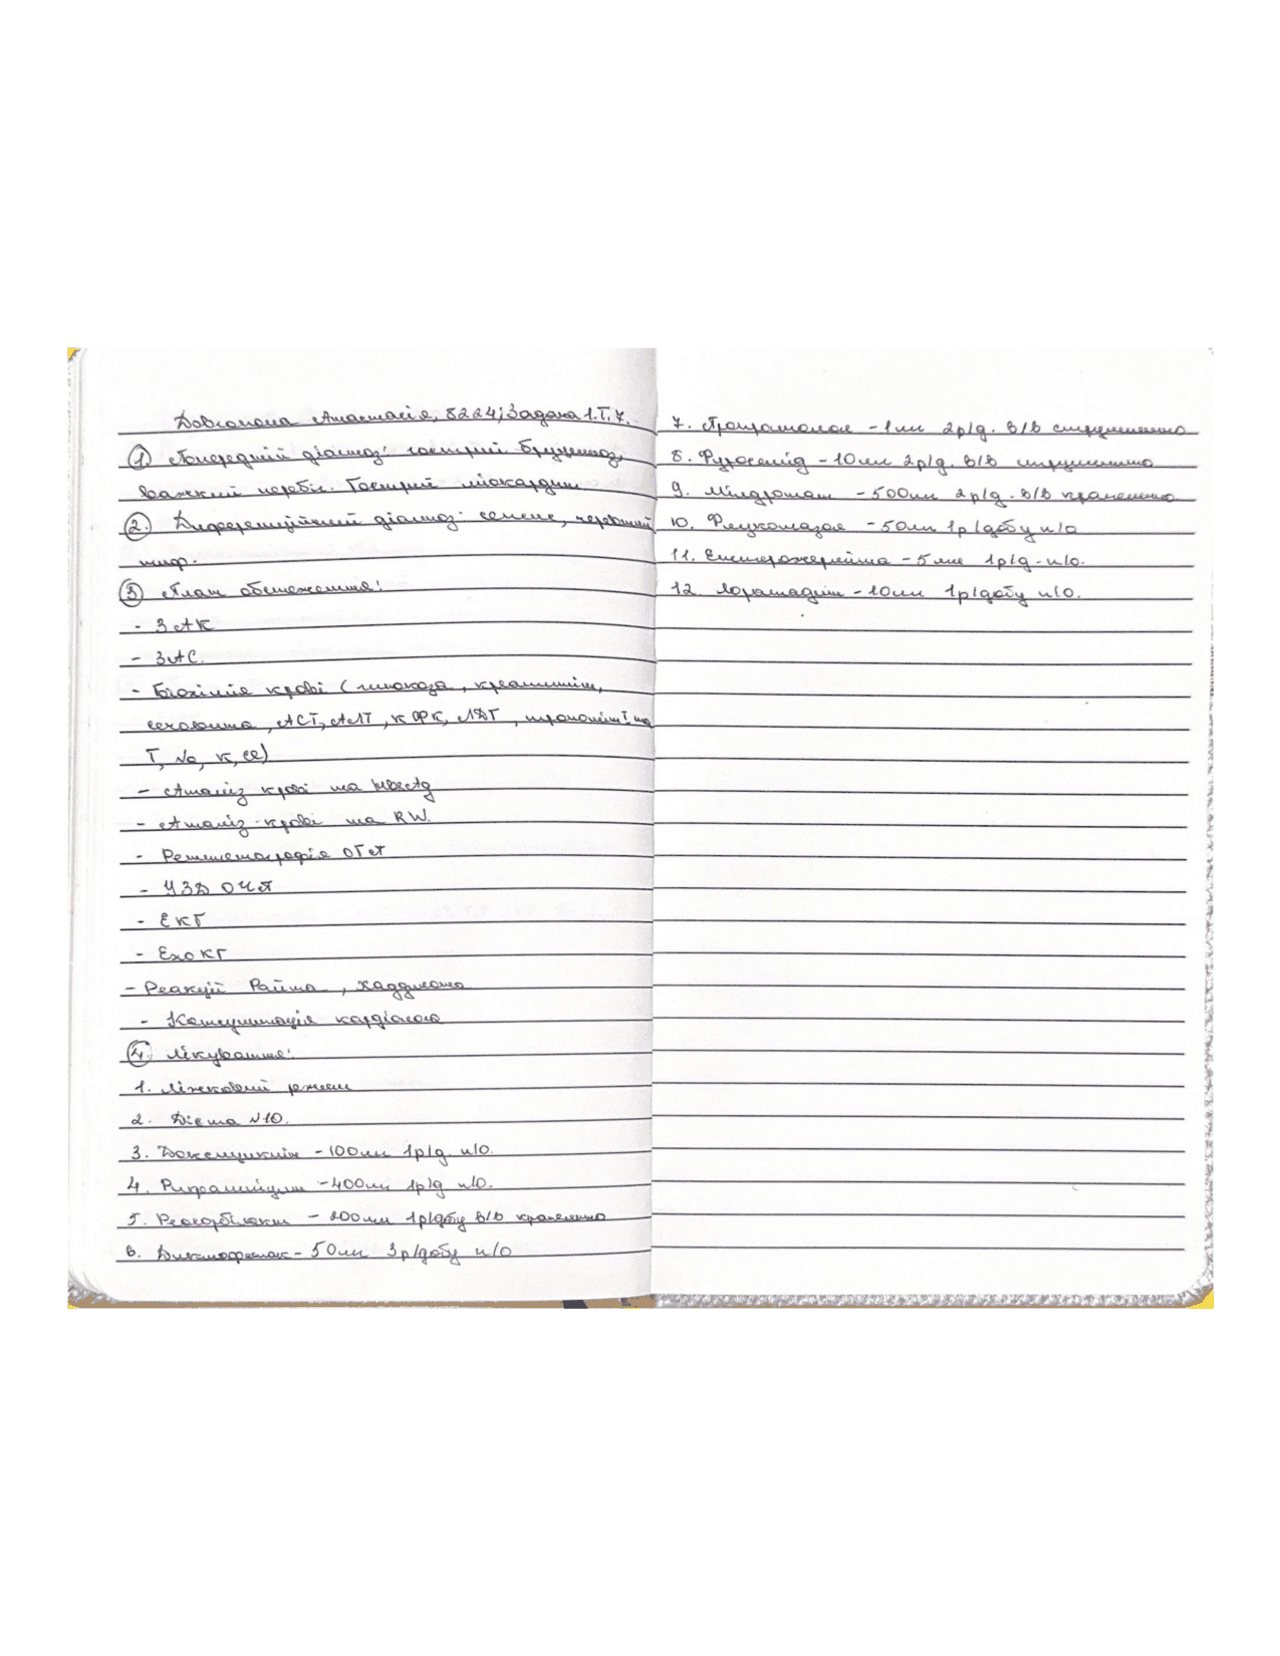 Довгопола Анастасія, 8224; Задача 1. Т. 7.
① Попередній діагноз: гострий бруцельоз,
важкий перебіг. Гострий міокардит.
② Диференційний діагноз: сепсис, черевний
тиф.
③ План обстеження:
- ЗАК
- ЗАС.
- Біохімія крові (глюкоза, креатинін,
сечовина, АСТ, АЛТ, КФК, ЛДГ, тропонін I та
Т, Na, K, Cl)
- Аналіз крові на HBsAg
- Аналіз крові на RW.
- Рентгенографія ОГП
- УЗД ОЧП
- ЕКГ
- Ехо КГ
- Реакції Райта, Хаддлсона
- Консультація кардіолога
④ Лікування:
1. Ліжковий режим
2. Дієта №10.
3. Доксициклін - 100мг 1р/д. п/о.
4. Рифампіцин - 400мг 1р/д п/о.
5. Реосорбілакт - 200мл 1р/добу в/в крапельно
6. Диклофенак - 50мг 3р/добу п/о
7. - 1мл 2р/д. в/в струминно
8. Фуросемід - 10мг 2р/д. в/в струминно
9. Мілдронат - 500мг 2р/д. в/в крапельно
10. Флуконазол - 50мг 1р/добу п/о
11. Ентерожерміна - 5мл 1р/д. п/о.
12 Лоратадин - 10мг 1р/добу п/о.